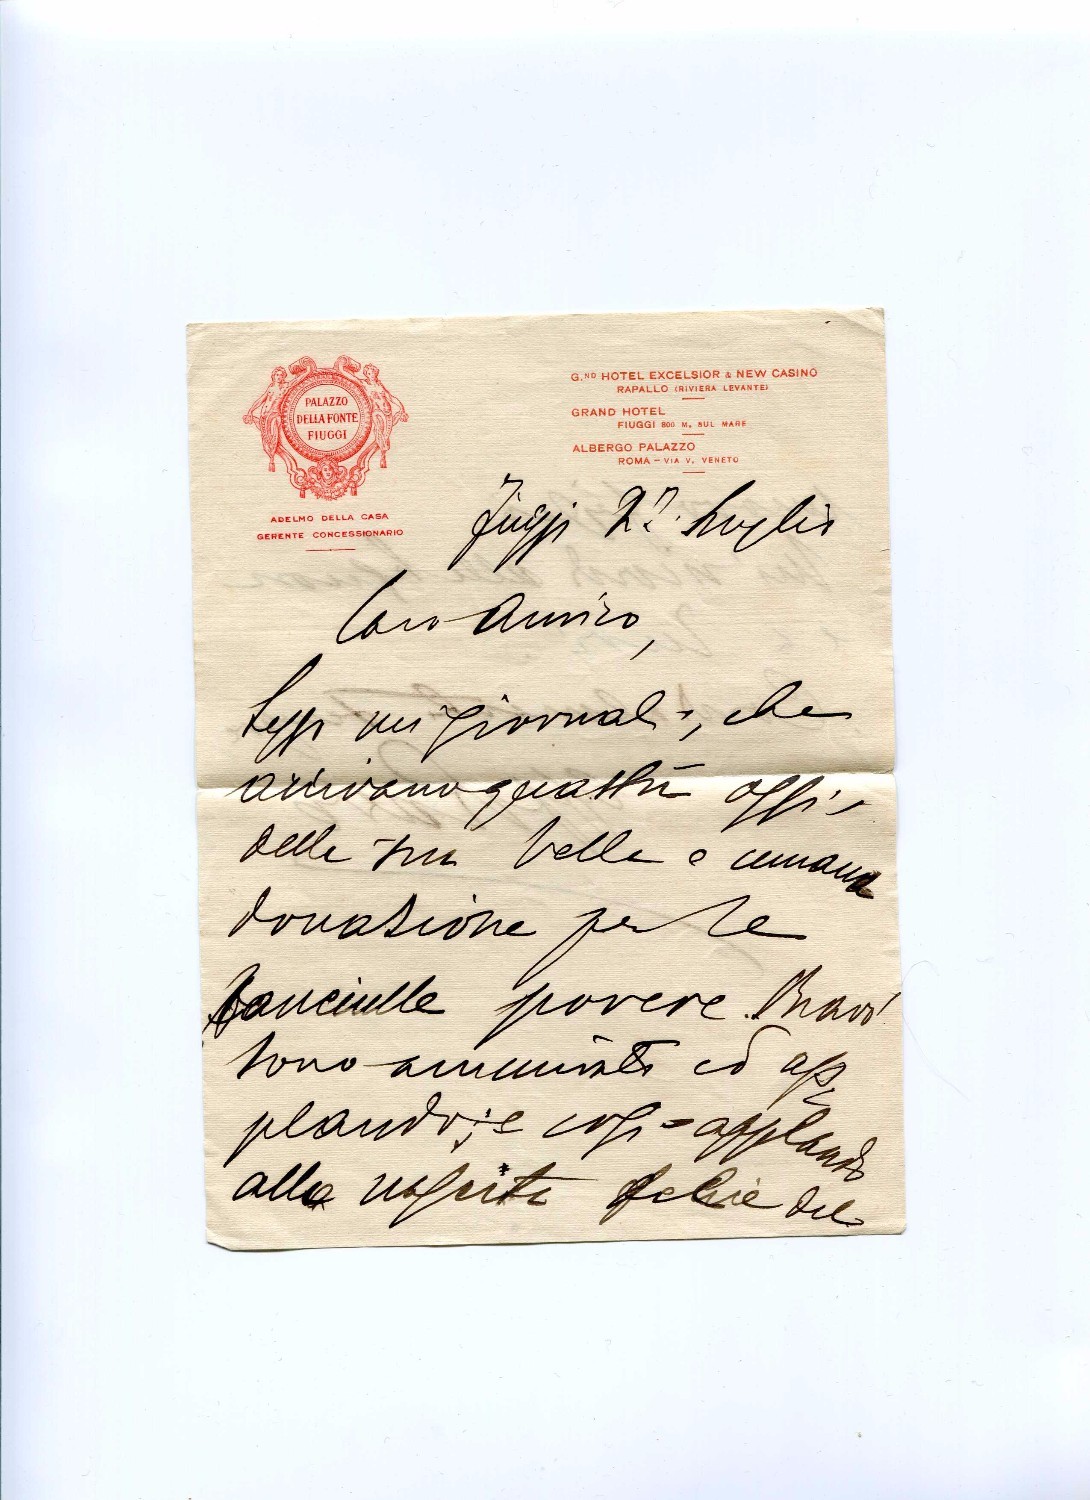 PALAZZO
DELLA FONTE
FIUGGI
ADELMO DELLA CASA
GERENTE CONCESSIONARIO
G.ND HOTEL EXCELSIOR & NEW CASINO
RAPALLO (RIVIERA LEVANTE)
GRAND HOTEL
FIUGGI 800 M. SUL MARE
ALBERGO PALAZZO
ROMA - VIA V. VENETO
Fiuggi 27. Luglio
Caro Amico,
Leggo nei giornali, che
arrivano quassù oggi,
della sua bella e umana
donazione per le
fanciulle povere. Bravo!
Sono ammirato ed ap-
plaudo; e così applaudo
alla uscita felice del